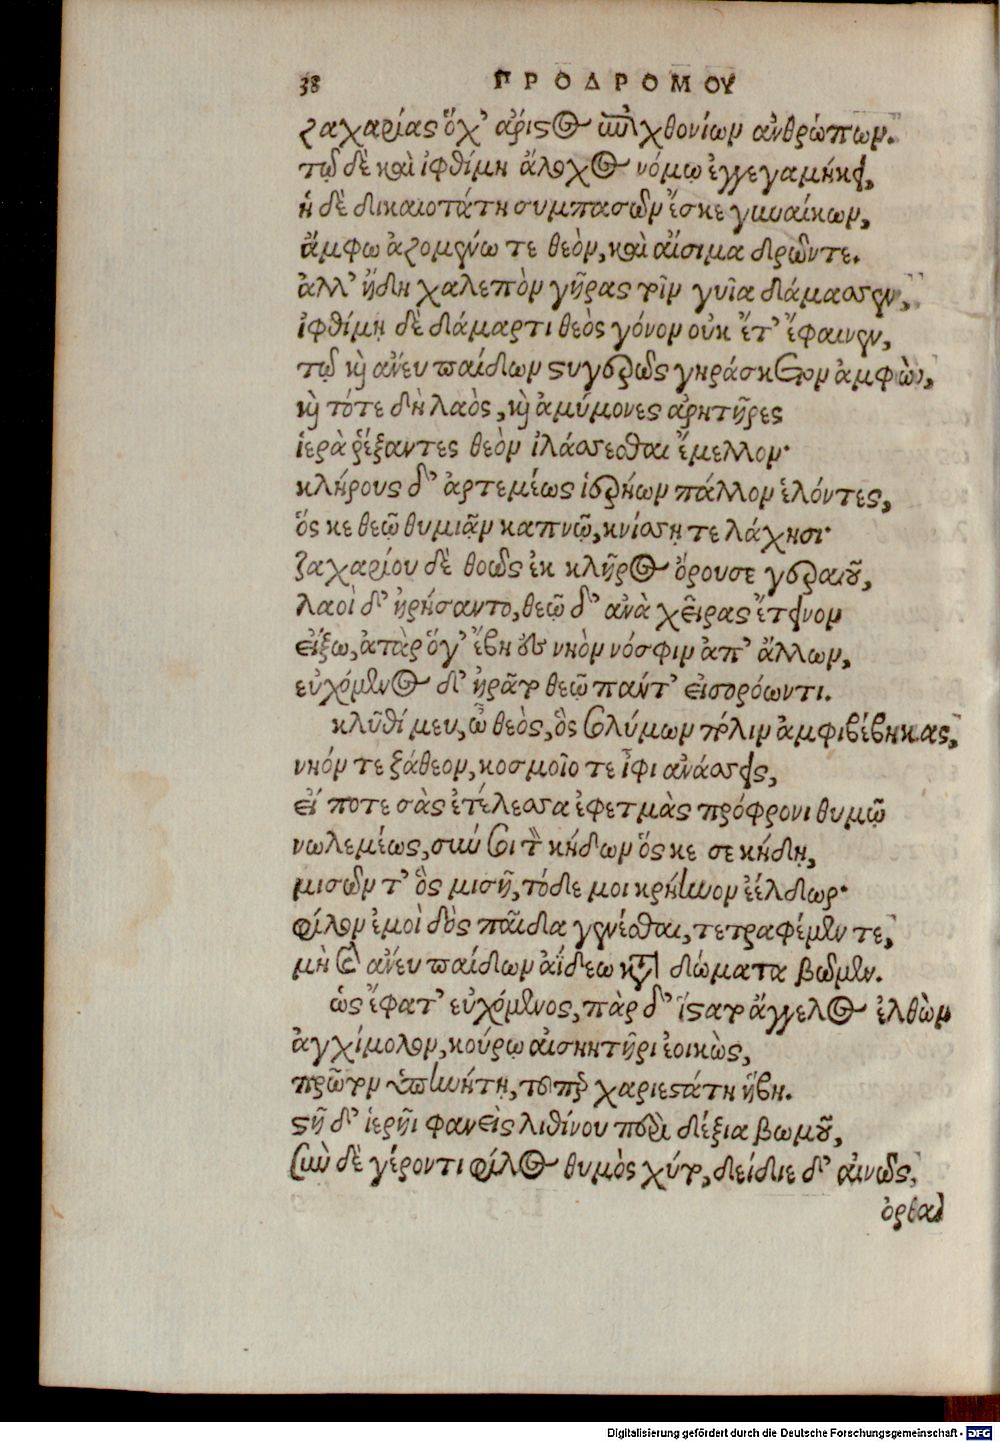 38 ΠΡΟΔΡΟΜΟΥ
ζαχαρίας ὄχ' ἄριστος ἐπιχθονίων ἀνθρώπων.
τῷ δὲ καὶ ἰφθίμη ἄλοχος νόμῳ ἐγγεγαμήκει,
ἡ δὲ δικαιοτάτη συμπασῶν ἔσκε γυναίκων,
ἄμφω ἀζομένω τε θεὸν, καὶ αἴσιμα δρῶντε.
ἀλλ' ἤδη χαλεπὸν γῆρας τρὶν γυῖα δάμασσεν,
ἰφθίμῃ δὲ δάμαρτι θεὸς γόνον οὐκ ἔτ' ἔφαινεν,
τῷ καὶ ἄνευ παίδων στυγερῶς γηράσκετον ἀμφώ,
καὶ τότε δὴ λαὸς, καὶ ἀμύμονες ἀρητῆρες
ἱερὰ ῥέξαντες θεὸν ἱλάσσεσθαι ἔμελλον·
κλήρους δ' ἀρτεμέως ἱερήων πάλλον ἑλόντες,
ὅς κε θεῷ θυμιᾶν καπνῷ, κνίσσῃ τε λάχησι·
ζαχαρίου δὲ θοῶς ἐκ κλῆρος ὄρουσε γεραιοῦ,
λαοὶ δ' ἠρήσαντο, θεῷ δ' ἀνὰ χεῖρας ἔτεινον
εἴξω, ἀτὰρ ὅγ' ἔβη ἐς νηὸν νόσφιν ἀπ' ἄλλων,
εὐχόμενος δ' ἠρᾶτο θεῷ πάντ' εἰσορόωντι.
κλῦθί μευ, ὦ θεὸς, ὃς σολύμων πόλιν ἀμφιβέβηκας,
νηόν τε ζάθεον, κοσμοῖο τε ἶφι ἀνάσσεις,
εἴ ποτε σὰς ἐτέλεσσα ἐφετμὰς πρόφρονι θυμῷ
νωλεμέως, σὺν σοί τε κήδων ὅς κε σε κήδῃ,
μισῶν τ' ὃς μισῇ, τόδε μοι κρήηνον ἐέλδωρ·
φίλον ἐμοὶ δὸς παῖδα γενέσθαι, τετραφέμεν τε,
μὴ σε ἄνευ παίδων ἀΐδεω κατὰ δώματα βῶμεν.
ὡς ἔφατ' εὐχόμενος, πὰρ δ' ἵστατο ἄγγελος ἐλθὼν
ἀγχίμολον, κούρῳ αἰσηητῆρι ἐοικὼς,
πρῶτον ὑπηνήτῃ, τοῦπερ χαριεστάτη ἥβη.
στῆ δ' ἱερῆι φανεὶς λιθίνου περὶ δέξια βωμοῦ,
σὺν δὲ γέροντι φίλος θυμὸς χύτο, δείδιε δ' αἰνῶς,
ὀρθαὶ
Digitalisierung gefördert durch die Deutsche Forschungsgemeinschaft - DFG